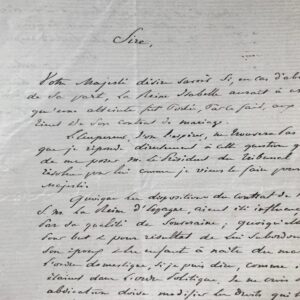 Sire,
Votre Majesté désire savoir si, en cas d'ab
de sa part, la Reine Isabelle aurait à c
qu'une atteinte fut portée, par le fait, aux
de son contrat de mariage.
L'Empereur, j'ose l'espérer, ne trouvera pas
que je réponde directement à cette question q
de me poser M. le Président du Tribunal
résolue par lui comme je viens le faire pou
Majesté.
Quoique les dispositions du contrat de
S. M. la Reine d'Espagne, aient été influen
par sa qualité de Souveraine, quoiqu'elle
pour but & pour résultat de lui subordon
son époux & les enfants à naître du ma
l'ordre domestique, si je puis dire, comme
étaient dans l'ordre politique, je ne crois
abdication doive modifier les droits qui